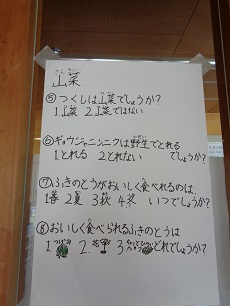 さんさい
山菜
⑤つくしは山菜でしょうか?
1山菜 2山菜ではない
⑥ギョウジャニンニクは野生でとれる
1とれる 2とれない でしょうか?
⑦ふきのとうがおいしく食べれるのは、
1春 2夏 3秋 4冬 いつでしょうか?
⑧おいしく食べられるふきのとうは
1 2. 3 どれでしょうか?